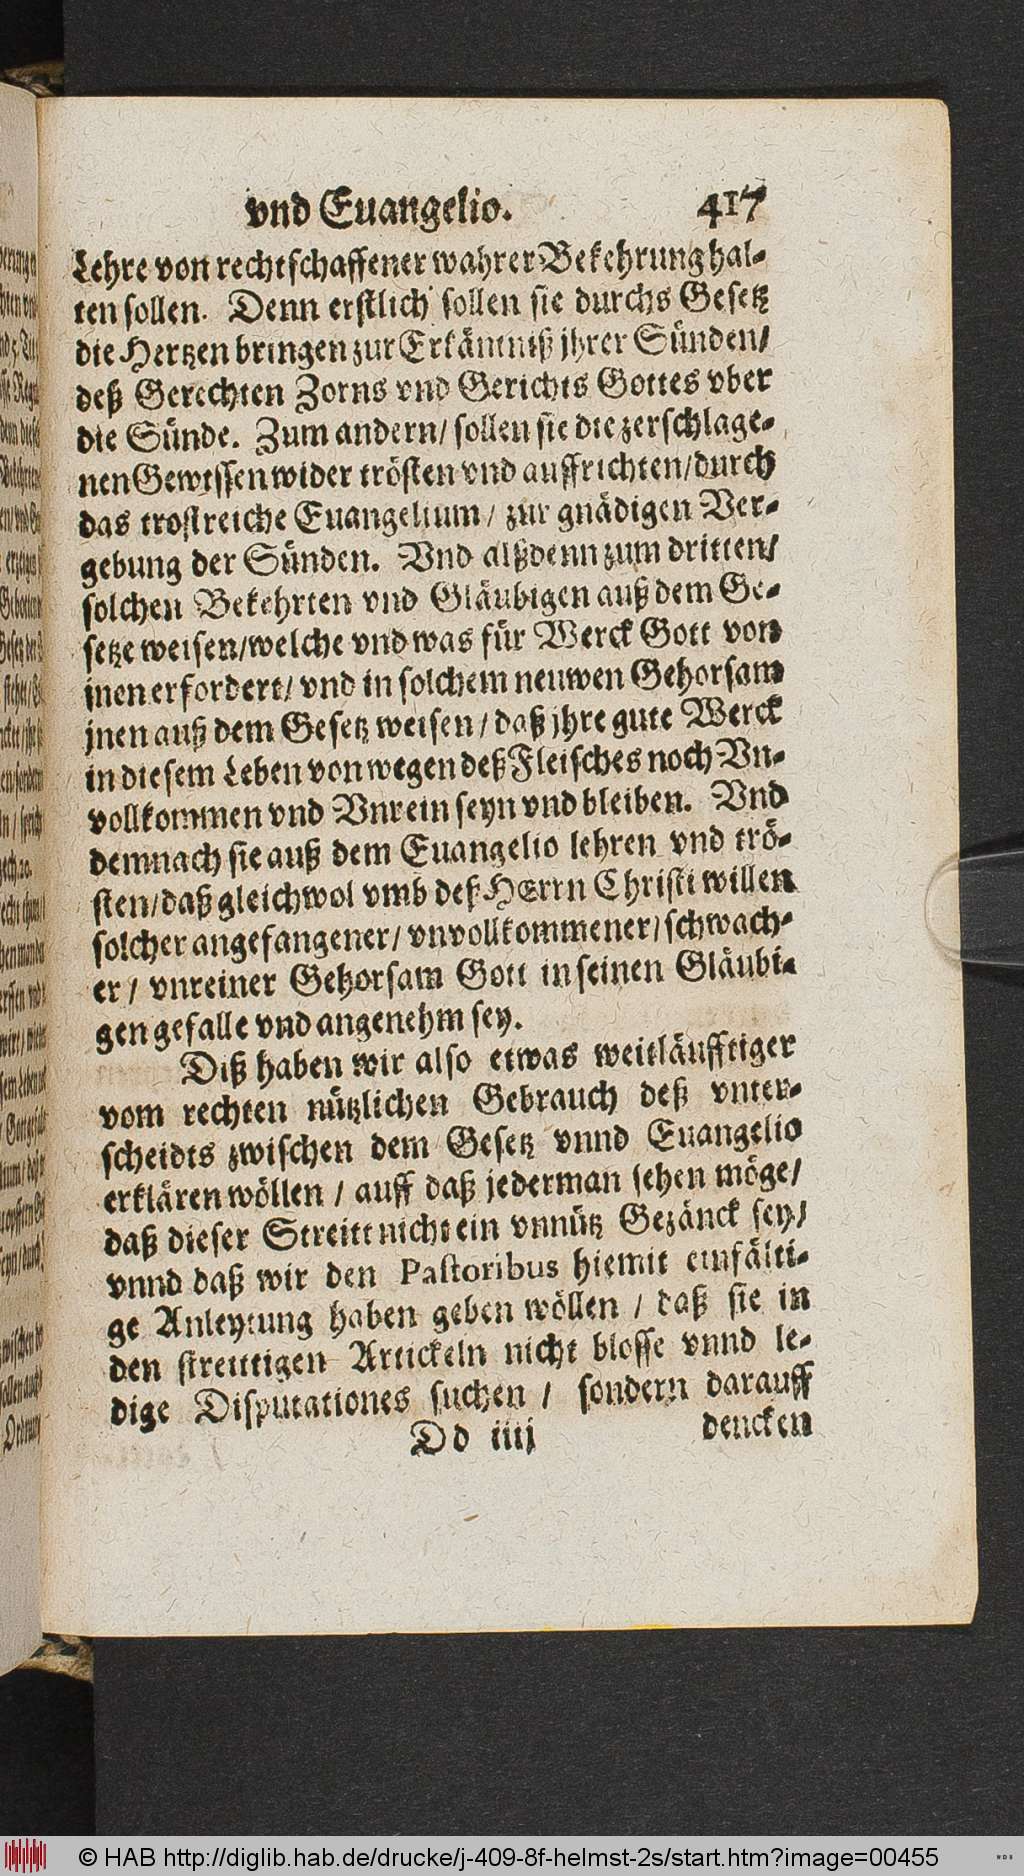 vnd Euangelio. 417
Lehre von rechtschaffener wahrer Bekehrung hal-
ten sollen. Denn erstlich sollen sie durchs Gesetz
die Hertzen bringen zur Erkäntniß jhrer Sünden/
deß Gerechten Zorns vnd Gerichts Gottes vber
die Sünde. Zum andern/ sollen sie die zerschlage-
nen Gewissen wider trösten vnd auffrichten/durch
das trostreiche Euangelium/ zur gnädigen Ver-
gebung der Sünden. Vnd alßdenn zum dritten/
solchen Bekehrten vnd Gläubigen auß dem Ge-
setze weisen/welche vnd was für Werck Gott von
jnen erfordert/ vnd in solchem neuwen Gehorsam
jnen auß dem Gesetz weisen/ daß jhre gute Werck
in diesem Leben von wegen deß Fleisches noch Vn-
vollkommen vnd Vnrein seyn vnd bleiben. Vnd
demnach sie auß dem Euangelio lehren vnd trö-
sten/daß gleichwol vmb deß HErrn Christi willen
solcher angefangener/ vnvollkommener/ schwach-
er/ vnreiner Gehorsam Gott in seinen Gläubi-
gen gefalle vnd angenehm sey.
Diß haben wir also etwas weitläufftiger
vom rechten nützlichen Gebrauch deß vnter-
scheidts zwischen dem Gesetz vnnd Euangelio
erklären wöllen / auff daß jederman sehen möge/
daß dieser Streitt nicht ein vnnütz Gezänck sey/
vnnd daß wir den Pastoribus hiemit einfälti-
ge Anleytung haben geben wöllen / daß sie in
den streittigen Artickeln nicht blosse vnnd le-
dige Disputationes suchen / sondern darauff
Dd iiij dencken
© HAB http://diglib.hab.de/drucke/j-409-8f-helmst-2s/start.htm?image=00455